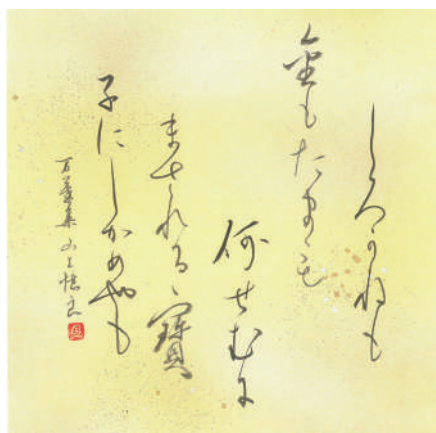 しろかねも
金もたまも
何せむに
まされる寶
子にしかめやも
万葉集 山上憶良